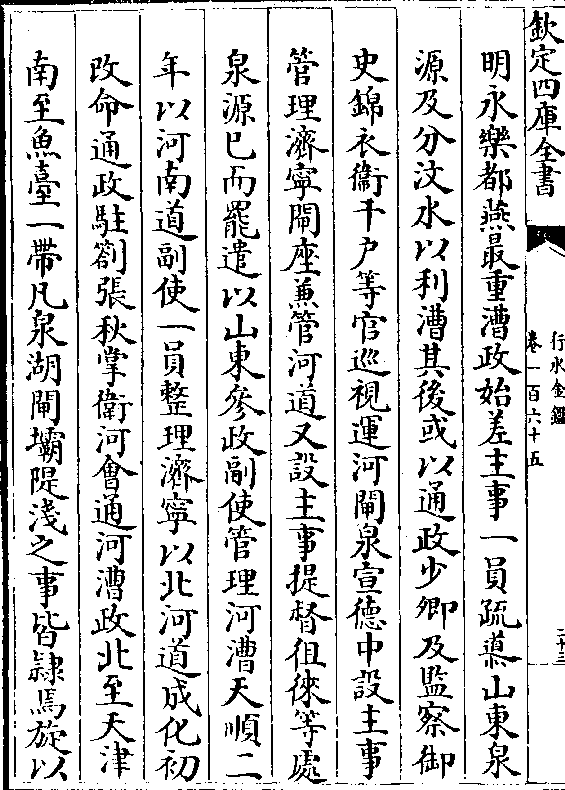 欽定四庫全書
行水金鑑
卷一百六十五
二十三
明永樂都燕最重漕政始差主事一員疏導山東泉
源及分汶水以利漕其後或以通政少卿及監察御
史錦衣衞千户等官廵視運河閘泉宣德中設主事
管理濟寧閘座兼管河道又設主事提督徂徠等處
泉源已而罷遣以山東參政副使管理河漕天順二
年以河南道副使一員整理濟寧以北河道成化初
改命通政駐劄張秋掌衛河會通河漕政北至天津
南至魚臺一帶凡泉湖閘壩隄淺之事皆隸焉旋以